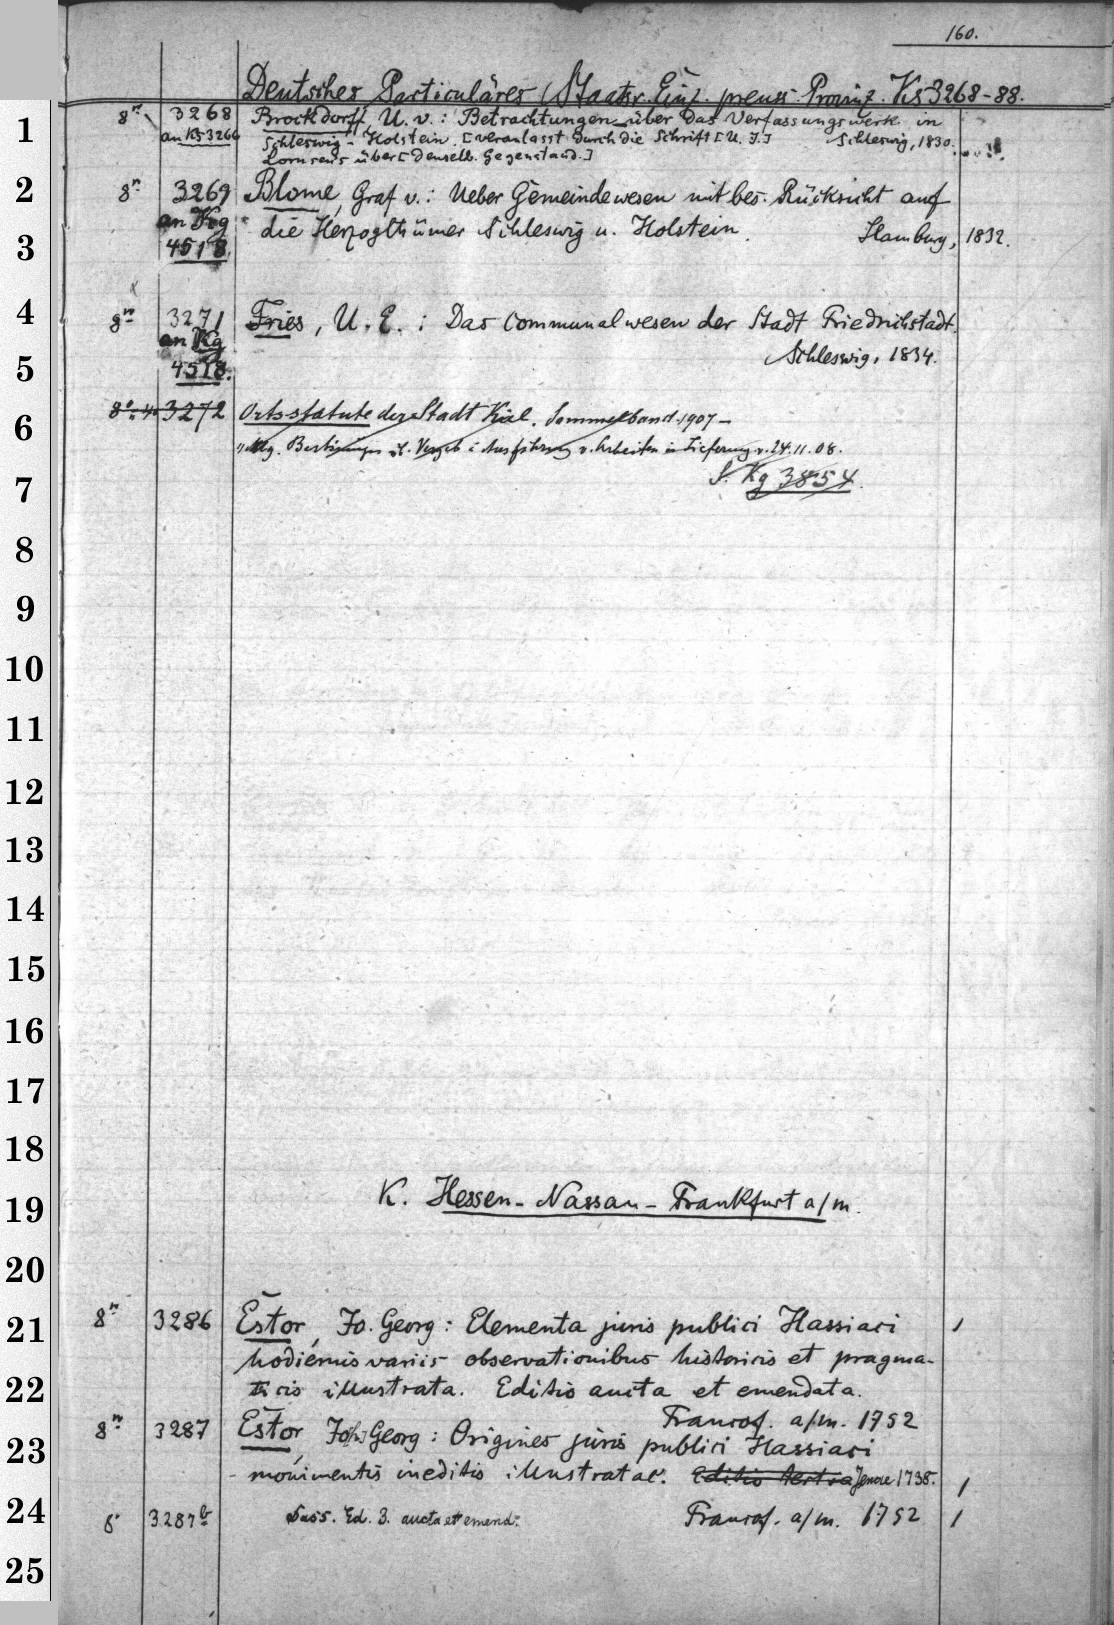 160.
Deutsches Particuläres Staatsr. Einz. preuss. Provinz. Ks 3268-88.
1
8° 3268 Brockdorff, U. v.: Betrachtungen über das Verfassungswerk in
an KS 3266 Schleswig-Holstein. [veranlasst durch die Schrift [U. J.] Schleswig, 1830.
Lornsens über [denselb. Gegenstand.]
2
8° 3269 Blome, Graf v.: Ueber Gemeindewesen mit bes. Rücksicht auf
an Kg die Herzogthümer Schleswig u. Holstein. Hamburg, 1832.
3
4518.
4
8° 3271 Fries, U. E.: Das Communalwesen der Stadt Friedrichstadt.
an Kg Schleswig, 1834.
5
4518.
6
8° 3272 Ortsstatute der Stadt Kiel. Sammelband. 1907-
Allg. Bestimmungen Vergeb Ausführung v. Arbeiten Lieferung v. 24.11.08.
7
S. Kg 3854.
8
9
10
11
12
13
14
15
16
17
18
19
K. Hessen-Nassau-Frankfurt a/m.
20
21
8° 3286 Estor, Jo. Georg: Elementa juris publici Hassiaci
hodiernis variis observationibus historicis et pragma-
22
ticis illustrata. Editio aucta et emendata.
Francof. a/m. 1752
23
8° 3287 Estor, Jo[h] Georg: Origines juris publici Hassiaci
monimentis ineditis illustratae. Editio tertia Jenae 1738.
24
8° 3287b Dass. Ed. 3. aucta et emend. Francof. a/m. 1752
25